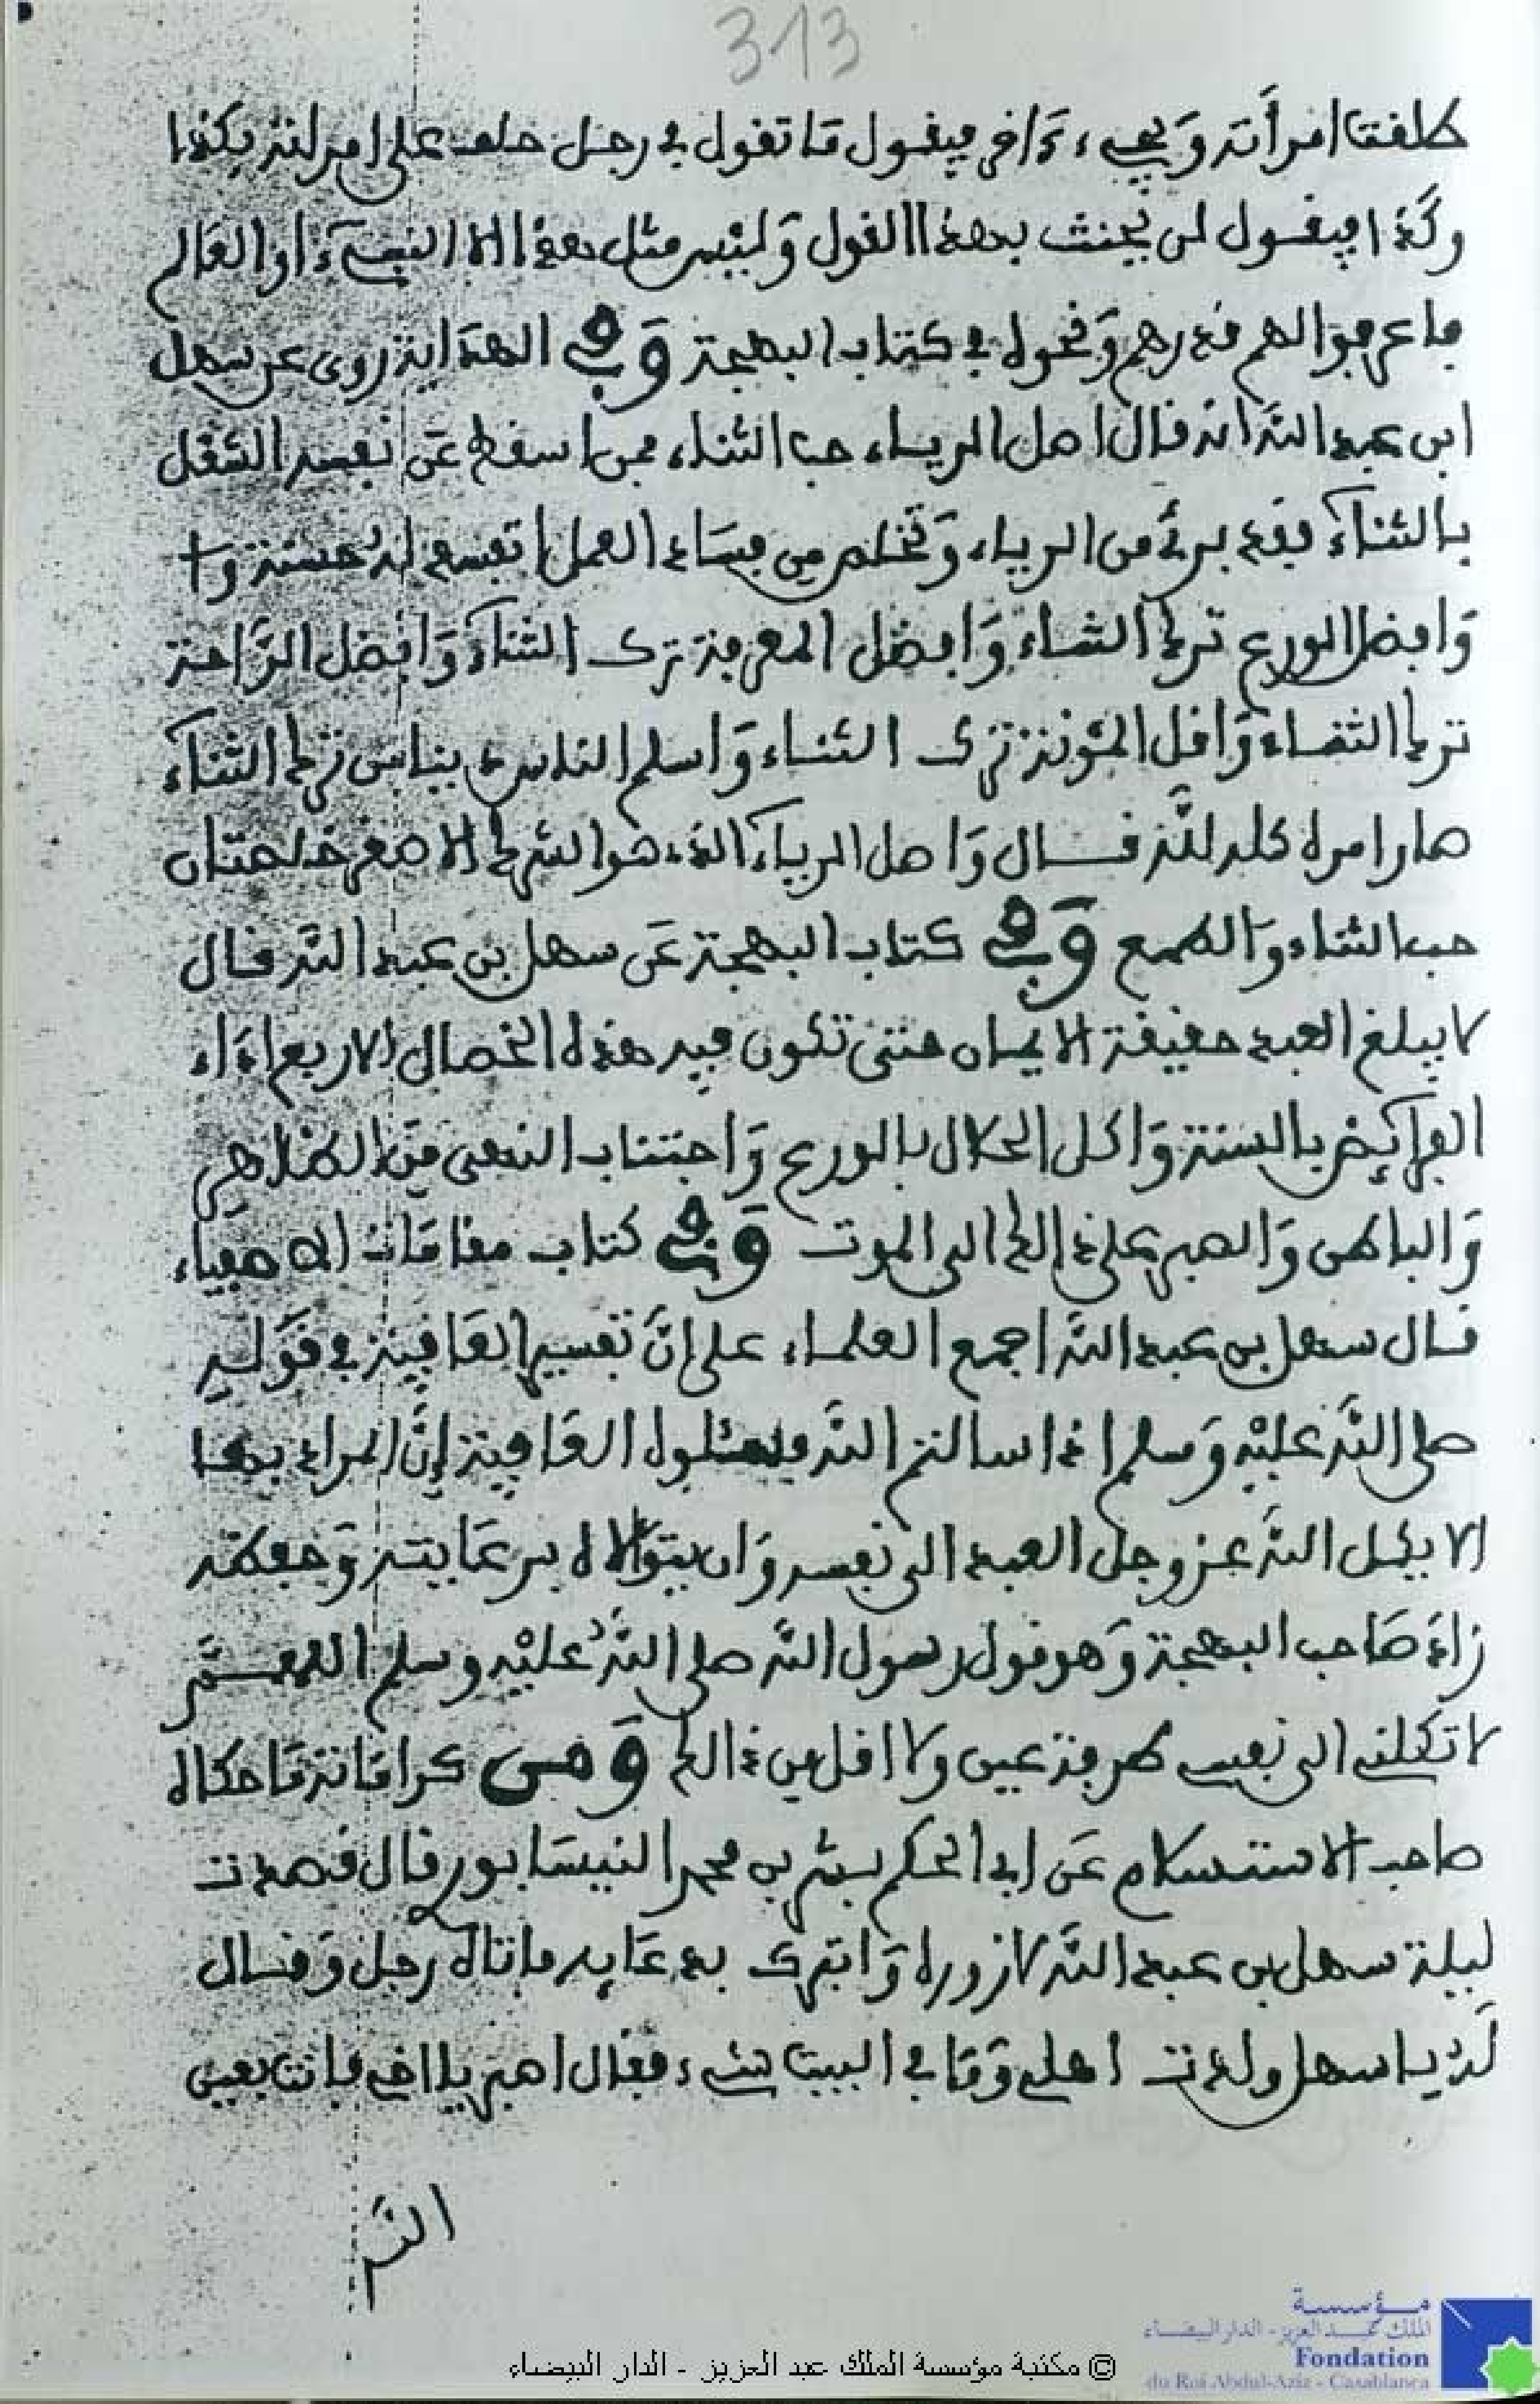 313
طلقت امرأته ويجيء ءاخر فيقول ما تقول في رجل حلف على امرأته بكذا
وكذا فيقول لم يحنث بهذا القول وليس مثل هذا الا النبيء او العالم
فاعرفوا لهم قدرهم ونحوه في كتاب البهجة وفي الهداية روى عن سهل
ابن عبد الله انه قال اصل الرياء حب الثناء فمن اسقط عن نفسه الشغل
بالثناء فقد برئ من الرياء وتخلص من فساد العمل
وافضل الورع ترك الثناء وافضل المعرفة ترك الثناء وافضل الراحة
ترك الثناء واقل المؤنة ترك الثناء واسلم الناس دينا من ترك الثناء
صار امره كله لله قال واصل الرياء الذي هو الشرك الاصغر خصلتان
حب الثناء والطمع وفي كتاب البهجة عن سهل بن عبد الله قال
لا يبلغ العبد حقيقة الايمان حتى تكون فيه هذه الخصال الاربع اداء
الفرائض بالسنة واكل الحلال بالورع واجتناب النهى من الظاهر
والباطن والصبر على ذالك الى الموت وفي كتاب مقامات الاصفياء
قال سهل بن عبد الله اجمع العلماء على ان تفسير العافية في قوله
صلى الله عليه وسلم اذا سالتم الله فاسئلوه العافية ان المراد بها
الا يكل الله عز وجل العبد الى نفسه وان يتولاه برعايته وحفظه
زاد صاحب البهجة وهو قول رسول الله صلى الله عليه وسلم اللهم
لا تكلني الى نفسي طرفة عين ولا اقل من ذالك ومن كراماته ما حكاه
صاحب الاستسلام عن ابي الحكم بشر بن محمد النيسابوري قال قصدت
ليلة سهل بن عبد الله لازوره واتبرك بدعايه فاتاه رجل وقال
له يا سهل ولدت اهلي وما في البيت شيء فقال اصبر يا اخي فانت بعين
الله
© مكتبة مؤسسة الملك عبد العزيز - الدار البيضاء
مؤسسة
الملك عبد العزيز - الدار البيضاء
Fondation
du Roi Abdul-Aziz - Casablanca